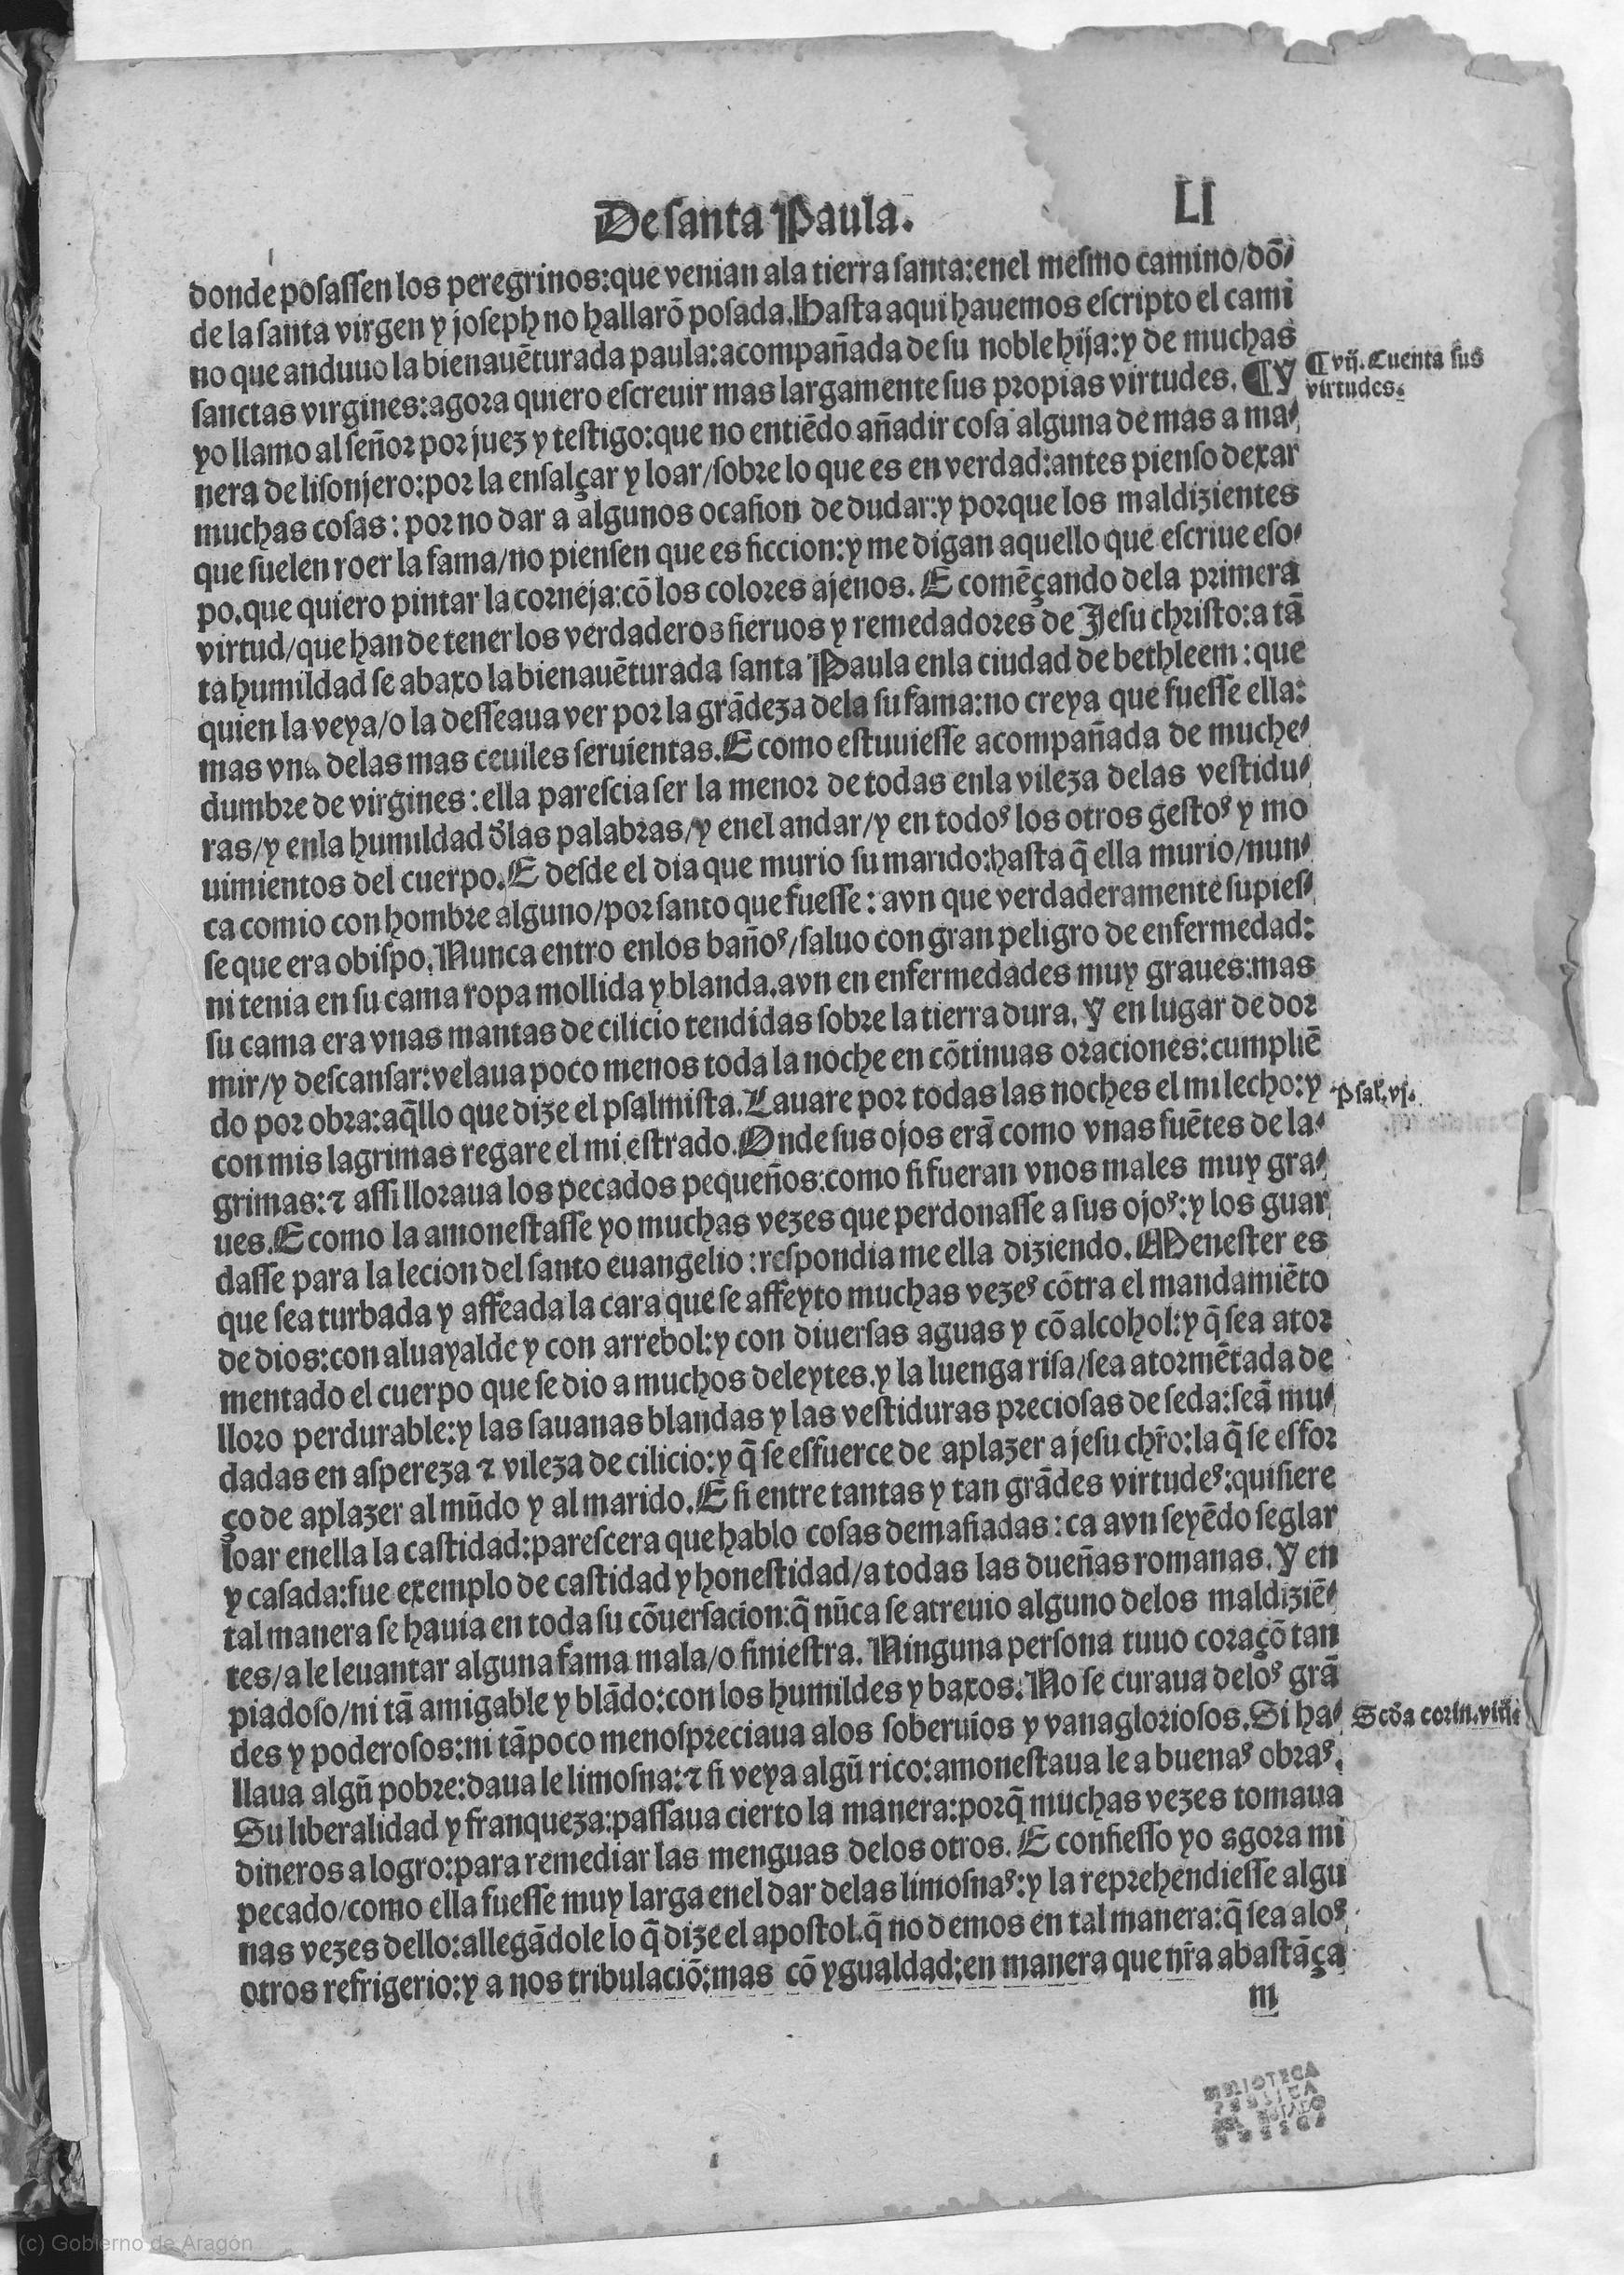 De ſanta Paula. LI
donde poſaſſen los peregrinos:que venian ala tierra ſanta:enel meſmo camino/dõ⸗
de la ſanta virgen y joſeph no hallarõ poſada. Haſta aqui hauemos eſcripto el cami
no que anduuo la bienauẽturada paula:acompañada de ſu noble hija:y de muchas
ſanctas virgines:agora quiero eſcreuir mas largamente ſus propias virtudes. ¶ Y
¶ vij. Cuenta ſus
virtudes.
yo llamo al ſeñor por juez y teſtigo:que no entiẽdo añadir coſa alguna de mas a ma⸗
nera de liſonjero:por la enſalçar y loar/ſobre lo que es en verdad:antes pienſo dexar
muchas coſas: por no dar a algunos ocaſion de dudar:y porque los maldizientes
que ſuelen roer la fama/no pienſen que es ficcion:y me digan aquello que eſcriue eſo⸗
po.que quiero pintar la corneja:cõ los colores ajenos. E comẽçando dela primera
virtud/que han de tener los verdaderos ſieruos y remedadores de Jeſu chriſto:a tã
ta humildad ſe abaxo la bienauẽturada ſanta Paula enla ciudad de bethleem: que
quien la veya/o la deſſeaua ver por la grãdeza dela ſu fama:no creya que fueſſe ella:
mas vna delas mas ceuiles ſeruientas. E como eſtuuieſſe acompañada de muche⸗
dumbre de virgines: ella pareſcia ſer la menor de todas enla vileza delas veſtidu⸗
ras/y enla humildad d̃las palabras/y enel andar/y en todoˢ los otros geſtoˢ y mo
uimientos del cuerpo. E deſde el dia que murio ſu marido:haſta q̃ ella murio/nun⸗
ca comio con hombre alguno/por ſanto que fueſſe: avn que verdaderamente ſupieſ⸗
ſe que era obiſpo. Nunca entro enlos bañoˢ/ſaluo con gran peligro de enfermedad:
ni tenia en ſu cama ropa mollida y blanda.avn en enfermedades muy graues:mas
ſu cama era vnas mantas de cilicio tendidas ſobre la tierra dura. Y en lugar de dor
mir/y deſcanſar:velaua poco menos toda la noche en cõtinuas oraciones:cumpliẽ
do por obra:aq̃llo que dize el pſalmiſta. Lauare por todas las noches el mi lecho:y
Pſal.vj.
con mis lagrimas regare el mi eſtrado. Onde ſus ojos erã como vnas fuẽtes de la⸗
grimas:⁊ aſſi lloraua los pecados pequeños:como ſi fueran vnos males muy gra⸗
ues. E como la amoneſtaſſe yo muchas vezes que perdonaſſe a ſus ojoˢ:y los guar
daſſe para la lecion del ſanto euangelio: reſpondia me ella diziendo. Meneſter es
que ſea turbada y affeada la cara que ſe affeyto muchas vezeˢ cõtra el mandamiẽto
de dios:con aluayalde y con arrebol:y con diuerſas aguas y cõ alcohol:y q̃ ſea ator
mentado el cuerpo que ſe dio a muchos deleytes.y la luenga riſa/ſea atormẽtada de
lloro perdurable:y las ſauanas blandas y las veſtiduras precioſas de ſeda:ſeã mu⸗
dadas en aſpereza ⁊ vileza de cilicio:y q̃ ſe esfuerce de aplazer a jeſu chr̃o:la q̃ ſe esfor
ço de aplazer al mũdo y al marido. E ſi entre tantas y tan grãdes virtudeˢ:quiſiere
loar enella la caſtidad:pareſcera que hablo coſas demaſiadas: ca avn ſeyẽdo ſeglar
y caſada:fue exemplo de caſtidad y honeſtidad/a todas las dueñas romanas. Y en
tal manera ſe hauia en toda ſu cõuerſacion:q̃ nũca ſe atreuio alguno delos maldiziẽ⸗
tes/a le leuantar alguna fama mala/o ſinieſtra. Ninguna perſona tuuo coraçõ tan
piadoſo/ni tã amigable y blãdo:con los humildes y baxos. No ſe curaua deloˢ grã
des y poderoſos:ni tãpoco menoſpreciaua alos ſoberuios y vanaglorioſos. Si ha⸗
Scd̃a corin.viij.
llaua algũ pobre:daua le limoſna:⁊ ſi veya algũ rico:amoneſtaua le a buenaˢ obraˢ.
Su liberalidad y franqueza:paſſaua cierto la manera:porq̃ muchas vezes tomaua
dineros a logro:para remediar las menguas delos otros. E confieſſo yo agora mi
pecado/como ella fueſſe muy larga enel dar delas limoſnaˢ:y la reprehendieſſe algu
nas vezes dello:allegãdole lo q̃ dize el apoſtol.q̃ no demos en tal manera:q̃ ſea aloˢ
otros refrigerio:y a nos tribulaciõ:mas cõ ygualdad:en manera que nr̃a abaſtãça
m
BIBLIOTECA
(c) Gobierno de Aragón